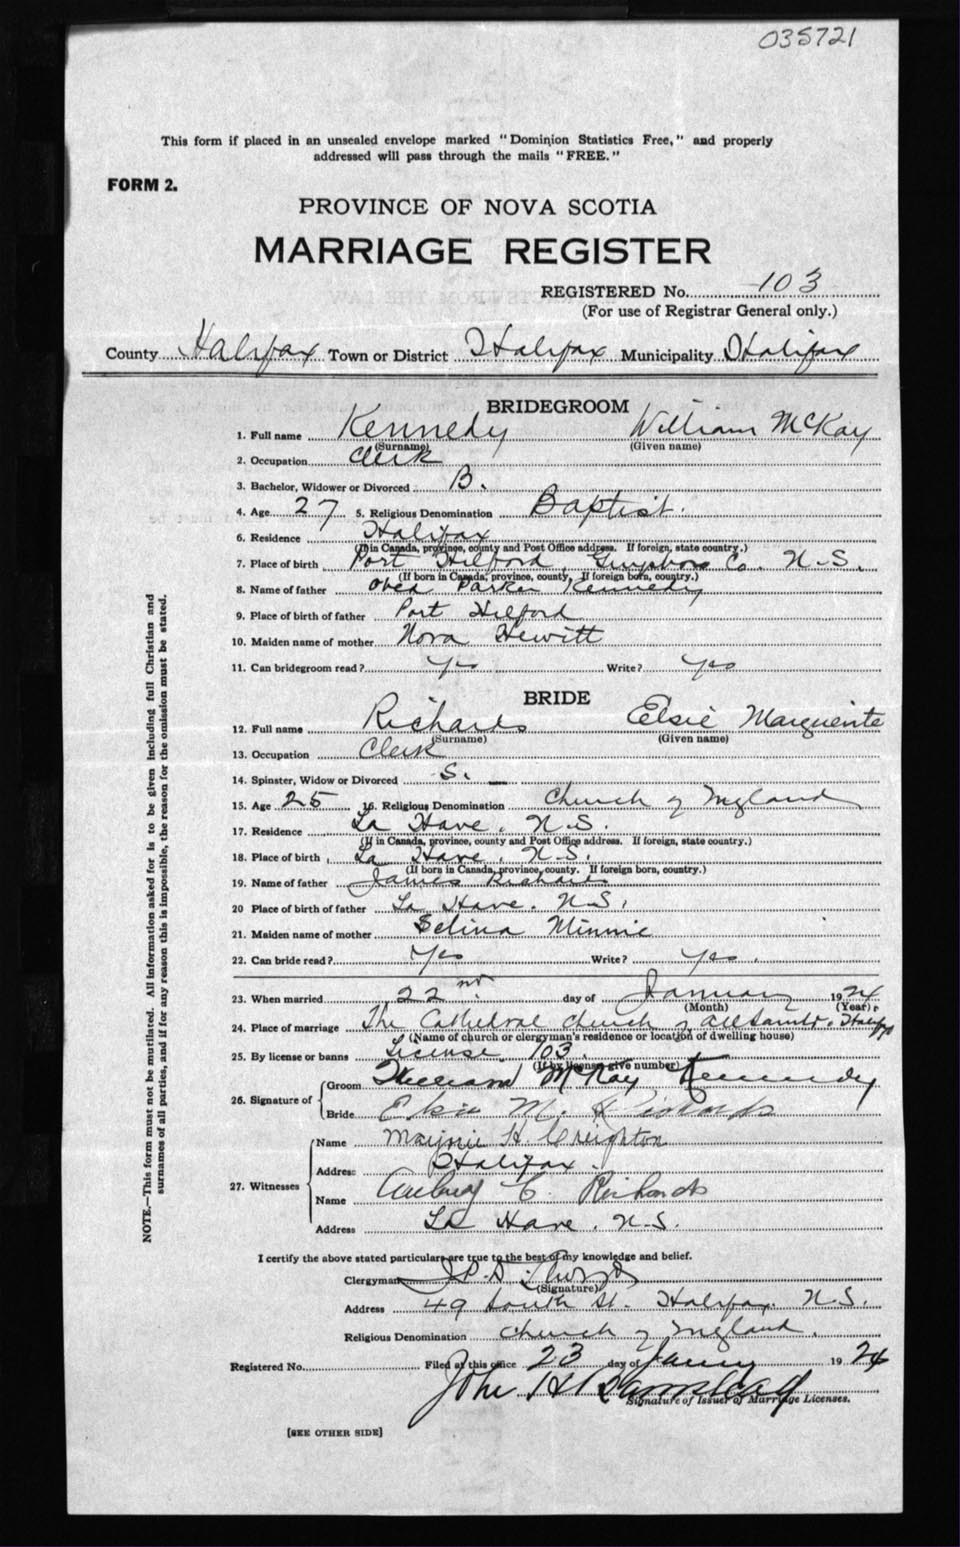 035721
This form if placed in an unsealed envelope marked "Dominion Statistics Free," and properly
addressed will pass through the mails "FREE."
FORM 2.
PROVINCE OF NOVA SCOTIA
MARRIAGE REGISTER
REGISTERED No. 103
(For use of Registrar General only.)
County Halifax Town or District Halifax Municipality Halifax
BRIDEGROOM
1. Full name Kennedy William McKay
(Surname) (Given name)
2. Occupation Clerk
3. Bachelor, Widower or Divorced B.
4. Age 27 5. Religious Denomination Baptist.
6. Residence Halifax
(If in Canada, province, county and Post Office address. If foreign, state country.)
7. Place of birth Port Hilford, Guysboro Co. N.S.
(If born in Canada, province, county, If foreign born, country.)
8. Name of father Obed Parker Kennedy
9. Place of birth of father Port Hilford
10. Maiden name of mother Nora Hewitt
11. Can bridegroom read? Yes Write? Yes
BRIDE
12. Full name Richards Elsie Marguerite
(Surname) (Given name)
13. Occupation Clerk
14. Spinster, Widow or Divorced S.
15. Age 25 16. Religious Denomination Church of England
17. Residence La Have, N.S.
(If in Canada, province, county and Post Office address. If foreign, state country.)
18. Place of birth La Have, N.S.
(If born in Canada, province, county. If foreign born, country.)
19. Name of father James Richards
20 Place of birth of father La Have, N.S.
21. Maiden name of mother Selina Minnie
22. Can bride read? Yes Write? Yes.
23. When married 22nd day of January 1924
(Month) (Year)
24. Place of marriage The Cathedral Church of All Saints, Halifax
(Name of church or clergyman's residence or location of dwelling house)
25. By license or banns License 103
(If by license give number)
26. Signature of Groom William McKay Kennedy
Bride Elsie M. Richards
27. Witnesses Name Marjorie H. Creighton
Address Halifax
Name Aubrey C. Richards
Address La Have, N.S.
I certify the above stated particulars are true to the best of my knowledge and belief.
Clergyman J.P.D.
(Signature)
Address 49 South St. Halifax, N.S.
Religious Denomination Church of England.
Registered No. Filed at this office 23 day of 1924
John
Signature of Issuer of Marriage Licenses.
[SEE OTHER SIDE]
NOTE.—This form must not be mutilated. All information asked for is to be given including full Christian and
surnames of all parties, and if for any reason this is impossible, the reason for the omission must be stated.